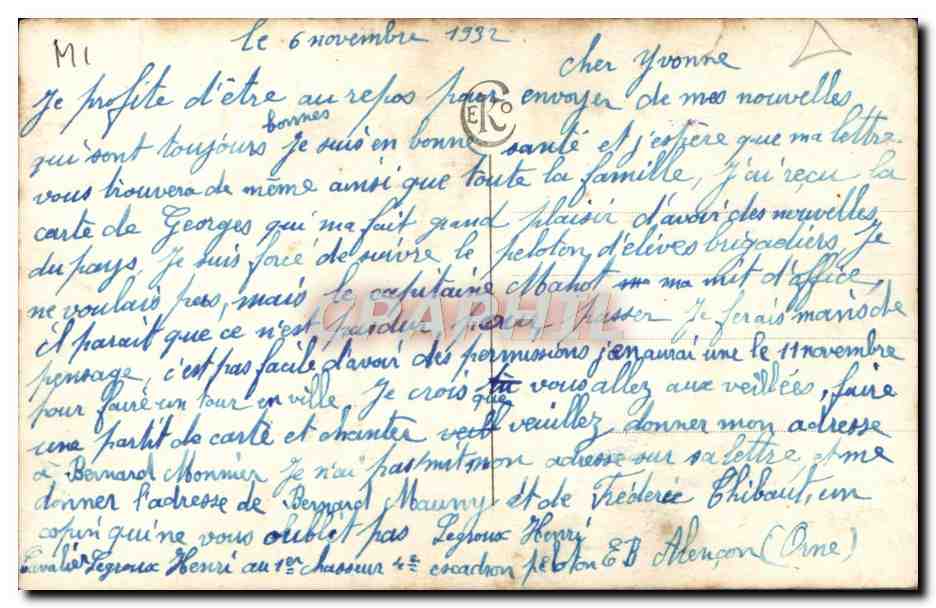 M1
le 6 novembre 1932
cher Yvonne
Je profite d'être au repos pour envoyer de mes nouvelles
qui sont toujours bonnes Je suis en bonne santé et j'espère que ma lettre
vous trouvera de même ainsi que toute la famille, J'ai reçu la
carte de Georges qui ma fait grand plaisir d'avoir des nouvelles
du pays, Je suis forcé de suivre le peloton d'elèves brigadiers, Je
ne voulais pas, mais le capitaine Mahot ma mit d'office,
il parait que ce n'est pas dur pour passer Je ferais mains de
pensage, c'est pas facile d'avoir des permissions j'en aurai une le 11 novembre
pour faire un tour en ville, Je crois que vous allez aux veillées, faire
une partit de carte et chanter veuillez donner mon adresse
à Bernard Monnier Je n'ai pas mit mon adresse sur sa lettre et me
donner l'adresse de Bernard Mauny et de Fréderic Thibaut, un
copin qui ne vous oublit pas Legroux Henri
Cavalier Legroux Henri au 1er chasseur 4e escadron peloton EB Alençon (Orne)
CEKO
CPAPHIL